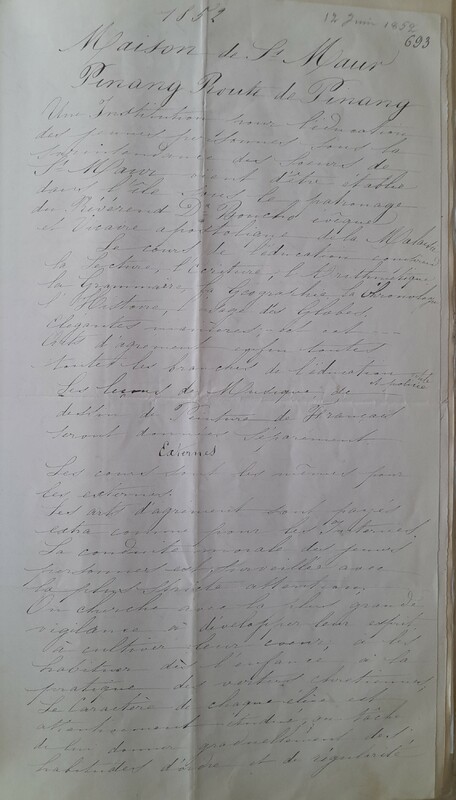 1852
12 Juin 1852
693
Maison de St Maur
Pinang Route de Pinang
Une Institution pour l'éducation
des jeunes personnes sous la
surintendance des soeurs de
St Maur, vient d'être établie
dans l'île sous le patronage
du Révérend Dr Boucho évêque
et Vicaire apostolique de la Malaisie
Le cours de l'éducation comprend
la Lecture, l'Ecriture, l'Arithmétique
la Grammaire, la Géographie, la Chronologie
l'Histoire, l'usage des Globes,
Elegantes
d'agrément enfin toutes
toutes les branches de l'éducation
Les leçons de Musique de
dessin de Peinture de Français
seront données séparement
Externes
Les cours sont les mêmes pour
les externes.
Les arts d'agrement sont payés
extra comme pour les Internes.
La conduite morale des jeunes
personnes est surveillée avec
la plus stricte attention.
On cherche avec la plus grande
vigilance à développer leur esprit,
à cultiver leur coeur, à les
habituer dès l'enfance, à la
pratique des vertus chretiennes,
Le caractère de chaque élève est
étudié, on tâche
de leur donner graduellement des
habitudes d'ordre et de régularité